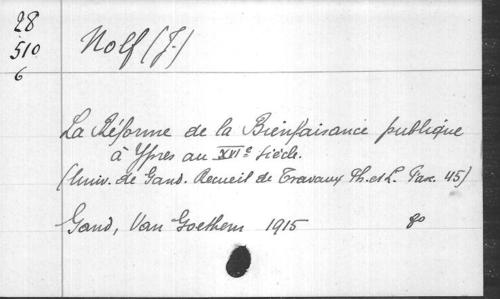 28
510
6
Nolf (J.)
La Réforme de la Bienfaisance publique
à Ypres au XVIe siècle.
(Univ. de Gand. Recueil de Travaux Ph. et L. Fax. 45)
Gand, Van Goethem 1915 go